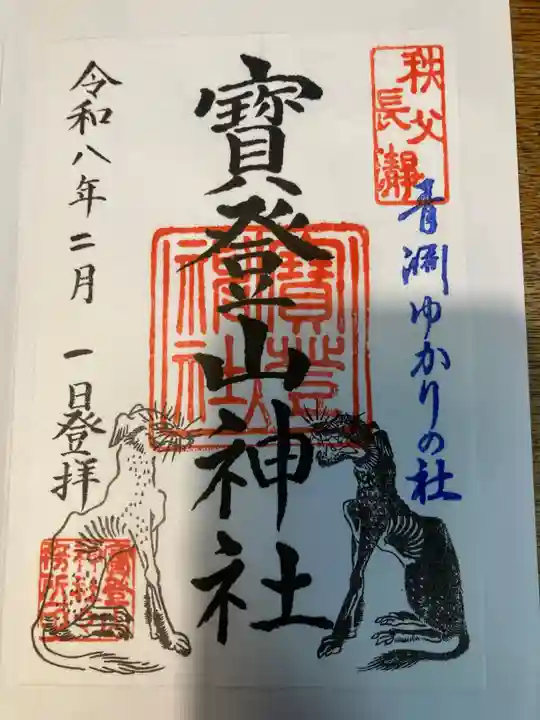 秩父
長瀞
青淵ゆかりの社
寶登山神社
寶登山
神社
令和八年二月 一日登拝
寶登山
神社社
務所印